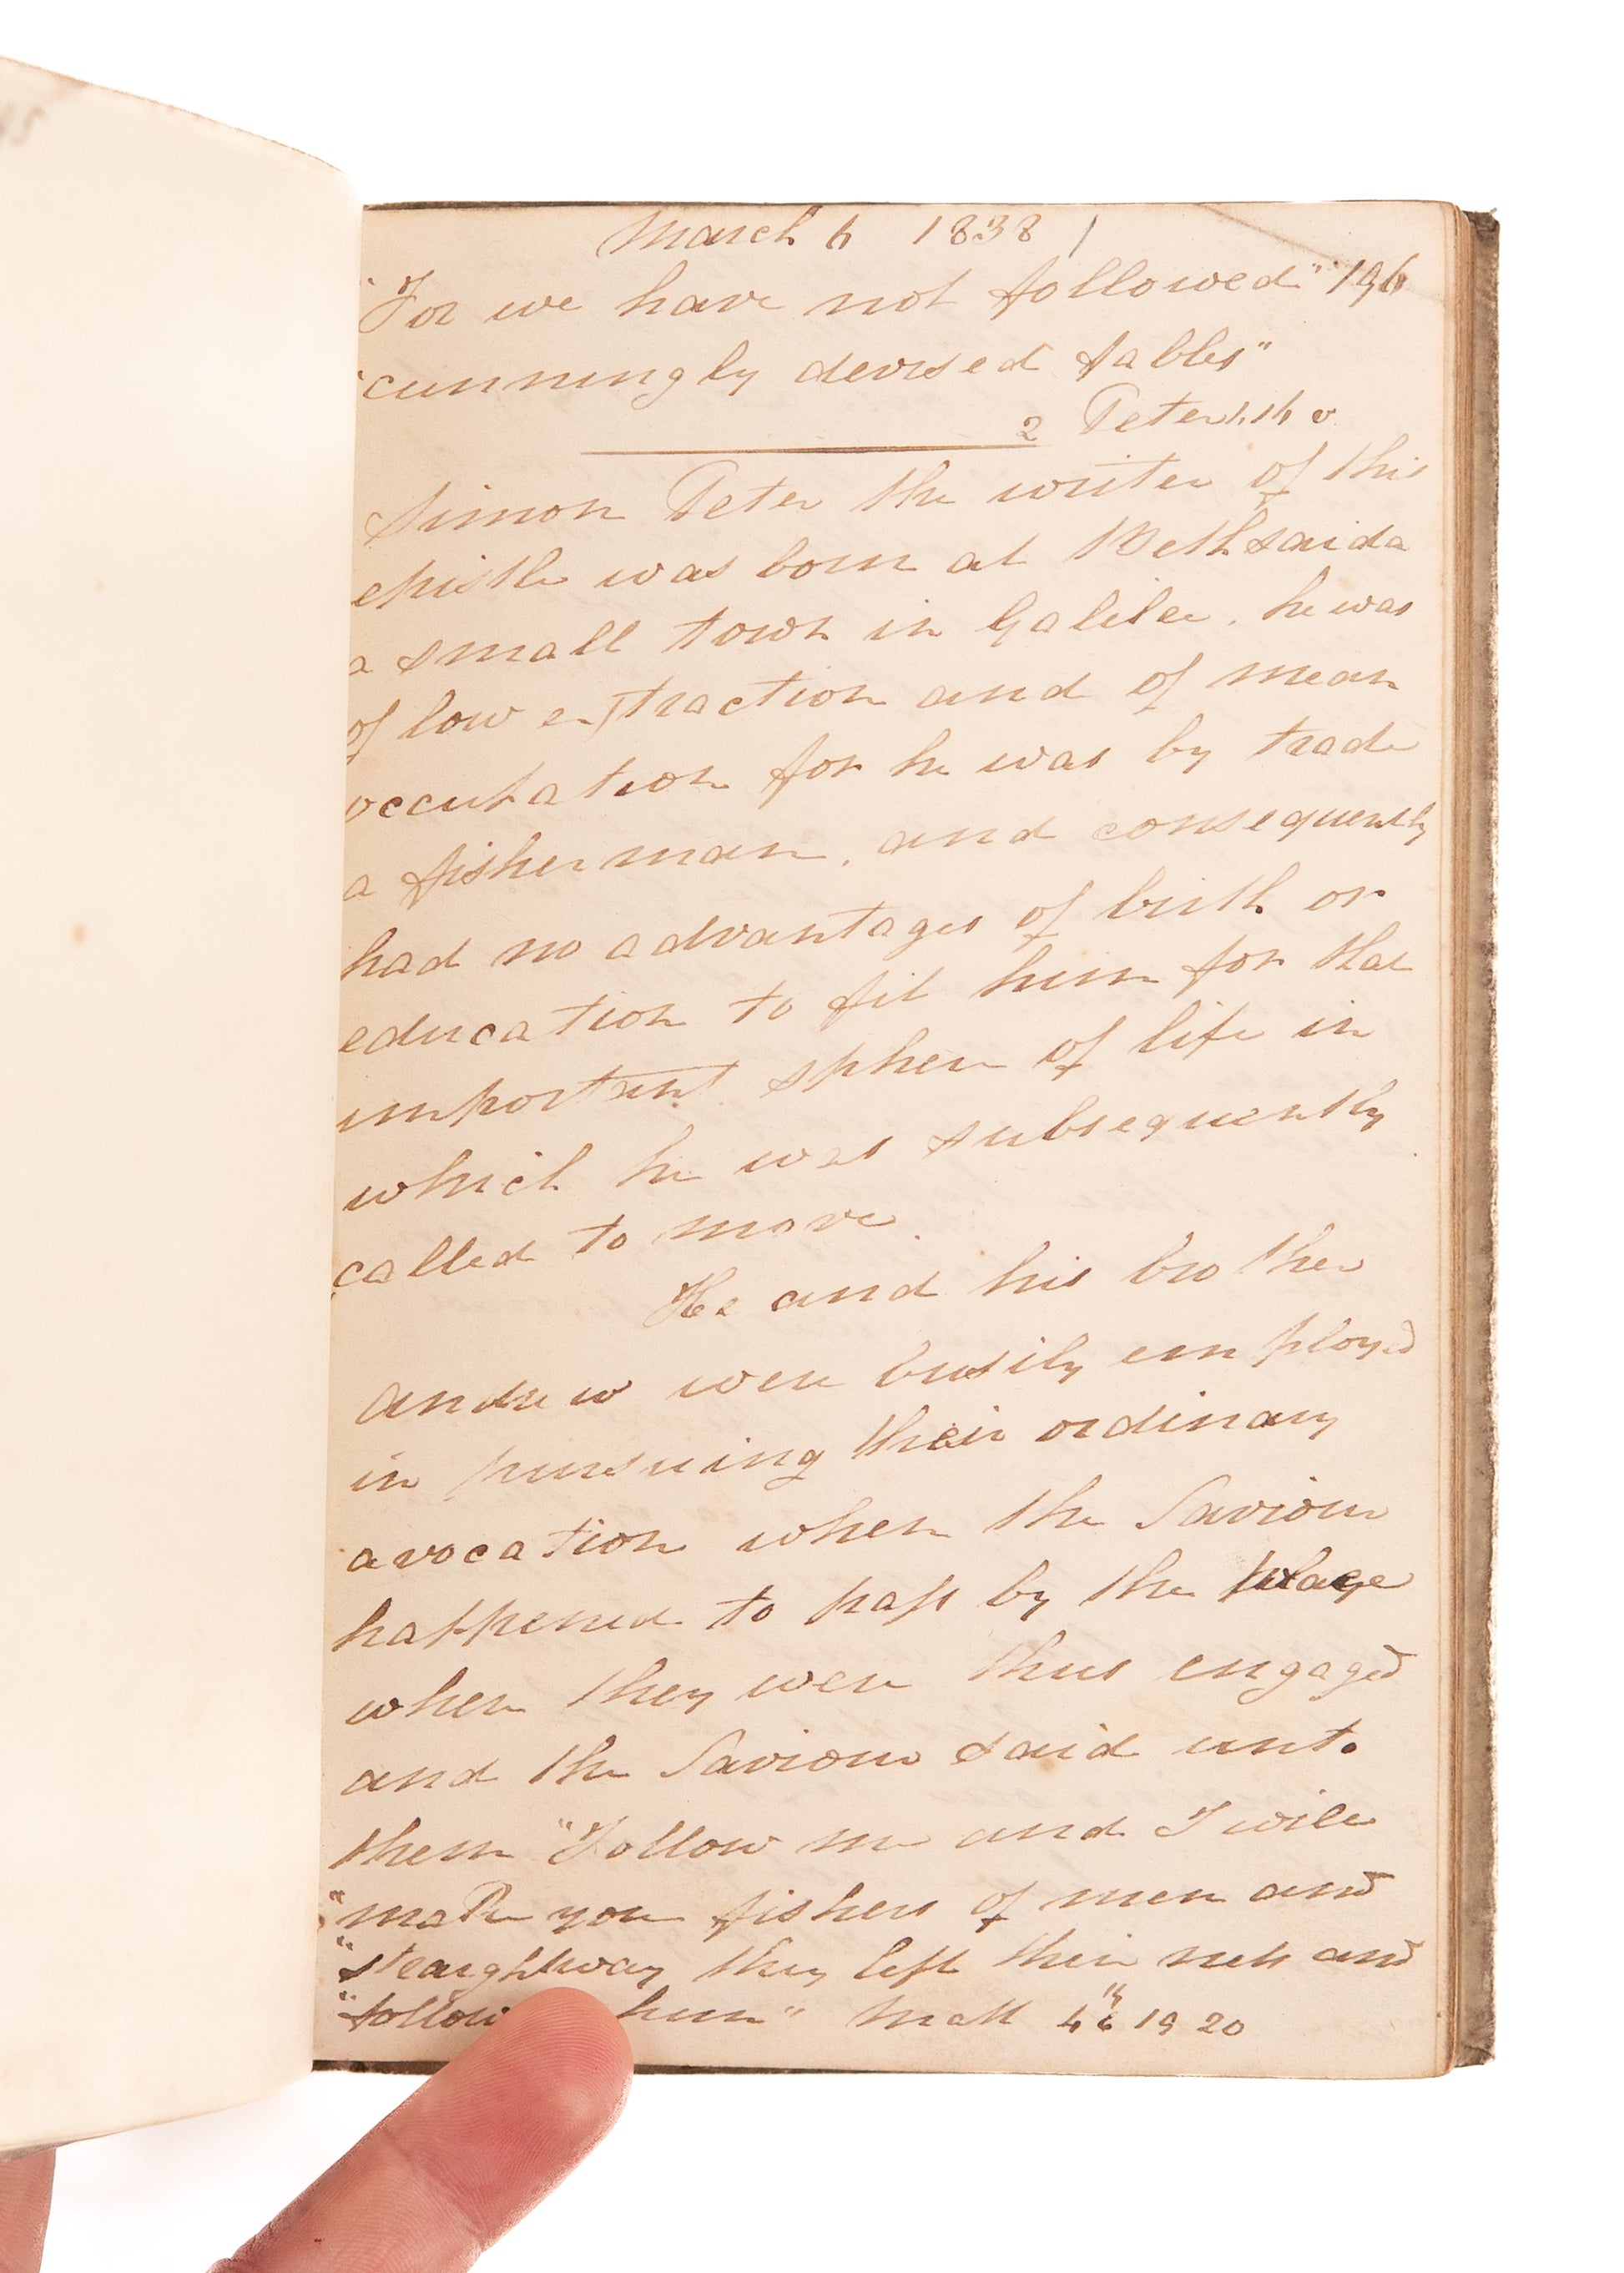 March 6 1838 /
"For we have not followed" 196
"cunningly devised fables"
2 Peter 1.16 v
Simon Peter the writer of this
epistle was born at Bethsaida
a small town in Galilee, he was
of low extraction and of mean
occupation for he was by trade
a fisherman, and consequently
had no advantages of birth or
education to fit him for that
important sphere of life in
which he was subsequently
called to move.
He and his brother
Andrew were busily employed
in pursuing their ordinary
avocation when the Saviour
happened to pass by the place
when they were thus engaged
and the Saviour said unto
them "Follow me and I will
"make you fishers of men and
"straightway they left their nets and
"follow him" Matt 4 19 20